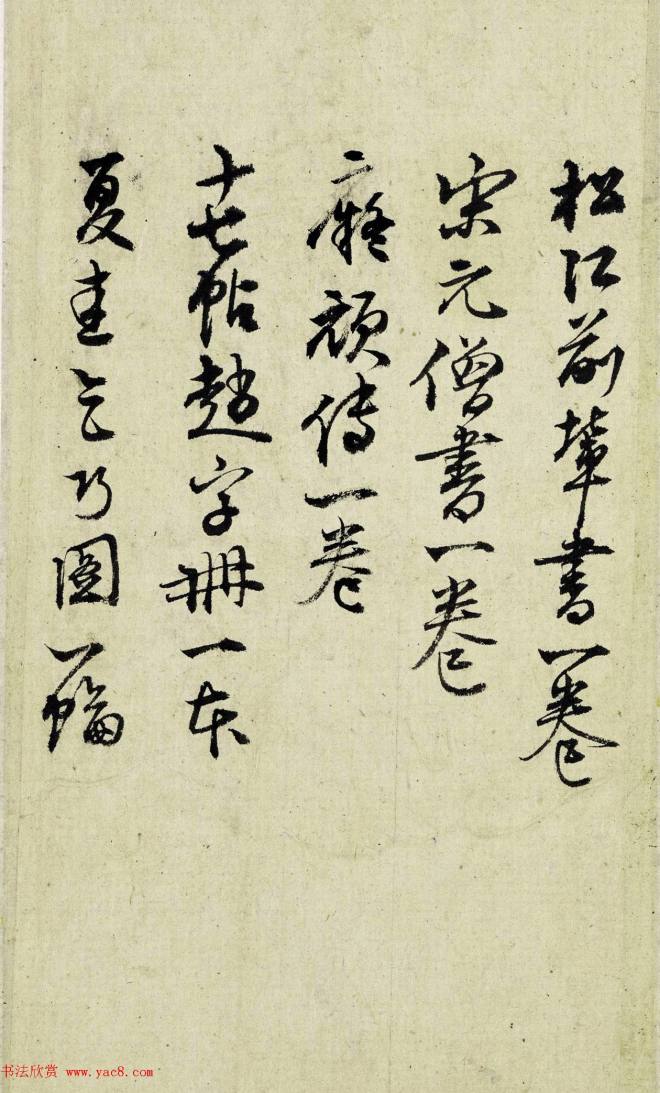 松江前輩書一卷
宋元僧書一卷
癡頑傳一卷
十七帖趙字冊一本
夏圭乞巧圖一幅
书法欣赏 www.yac8.com